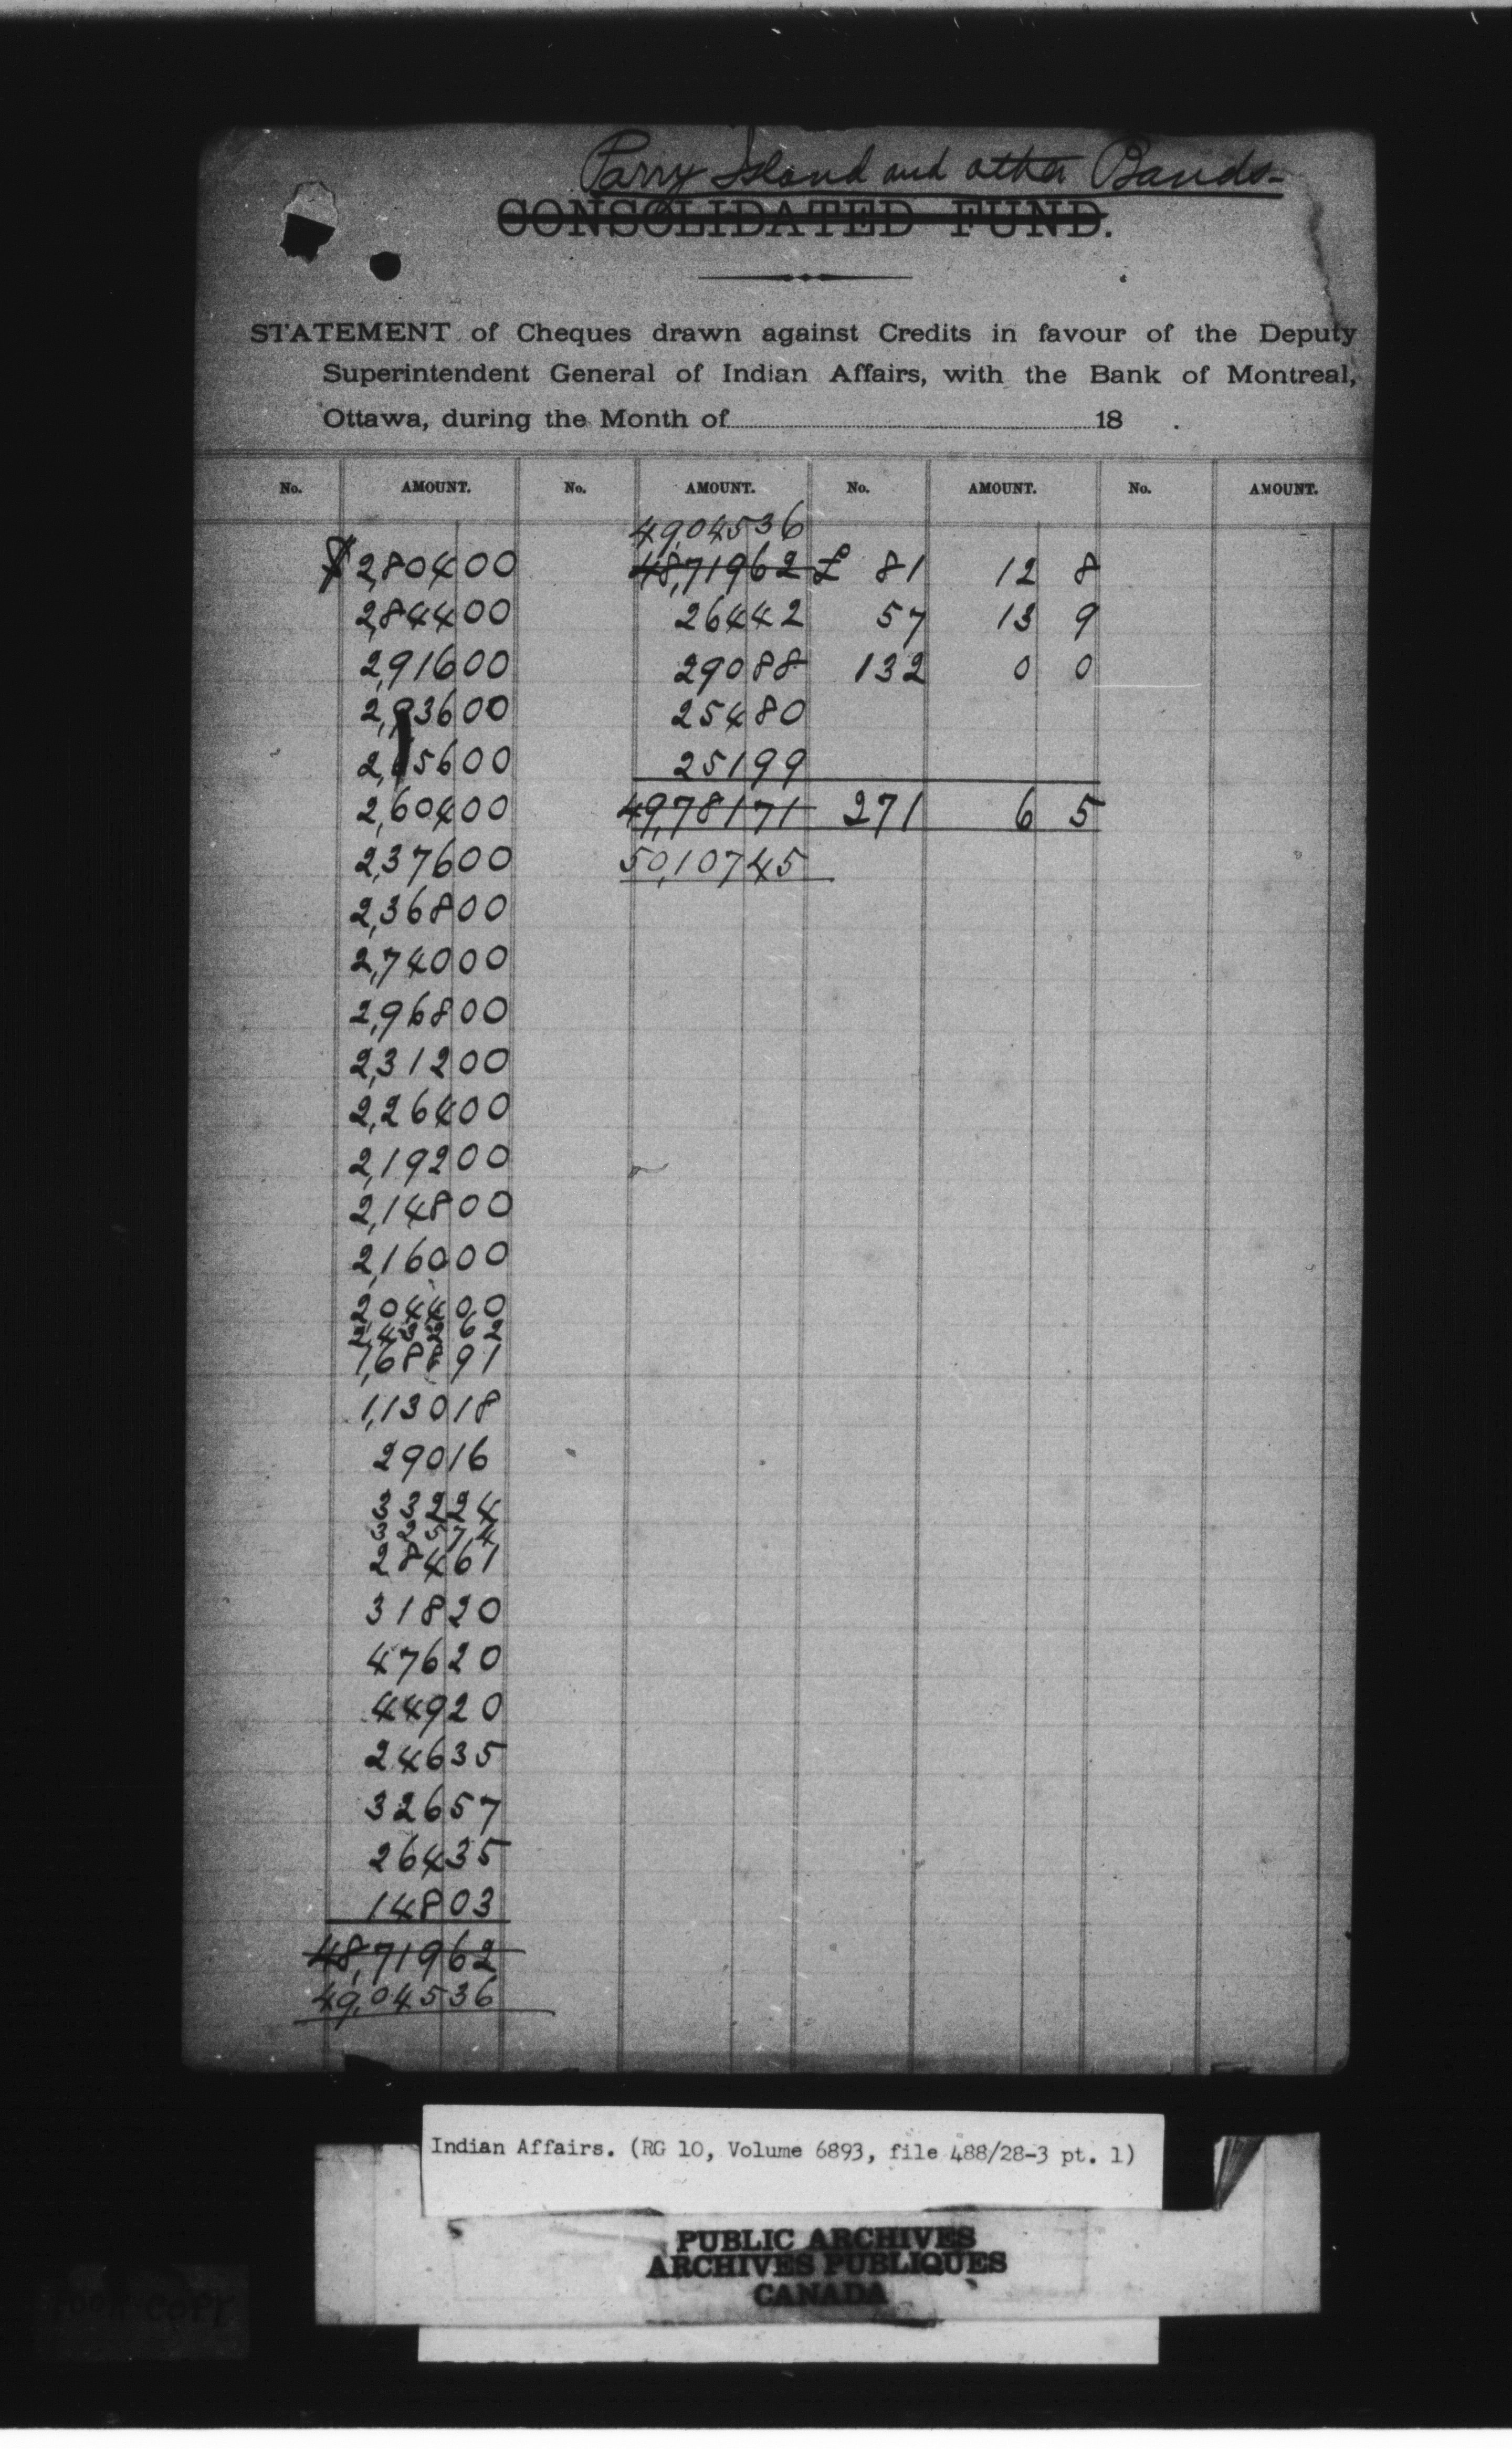 Parry Island and other Bands-
CONSOLIDATED FUND.
STATEMENT of Cheques drawn against Credits in favour of the Deputy
Superintendent General of Indian Affairs, with the Bank of Montreal,
Ottawa, during the Month of 18 .
No. AMOUNT. No. AMOUNT. No. AMOUNT. No. AMOUNT.
49,045 36
$2,804 00 48,719 62 £ 81 12 8
2,844 00 264 42 57 13 9
2,916 00 290 88 132 0 0
2,936 00 254 80
2,656 00 251 99
2,604 00 49,781 71 271 6 5
2,376 00 50,107 45
2,368 00
2,740 00
2,968 00
2,312 00
2,264 00
2,192 00
2,148 00
2,160 00
2,044 00
2,432 62
1,688 91
1,130 18
290 16
332 24
325 74
284 61
318 20
476 20
449 20
246 35
326 57
264 35
148 03
48,719 62
49,045 36
Indian Affairs. (RG 10, Volume 6893, file 488/28-3 pt. 1)
PUBLIC ARCHIVES
ARCHIVES PUBLIQUES
CANADA